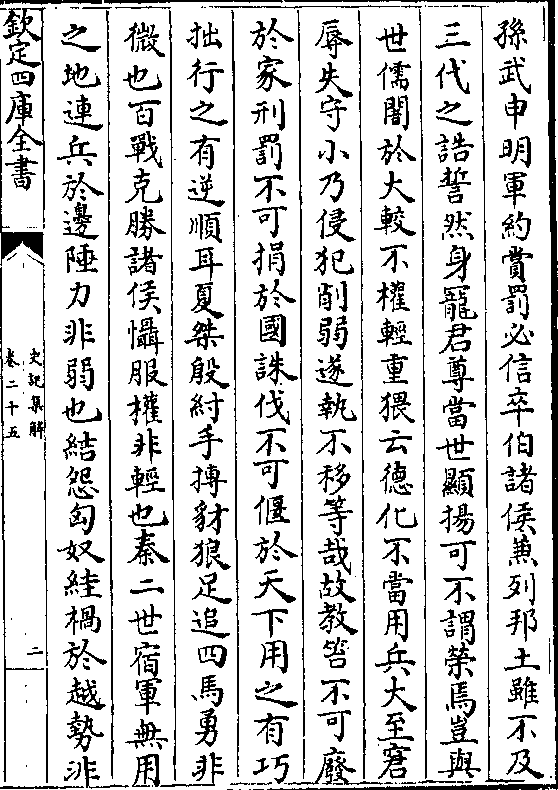 孫武申明軍約賞罰必信卒伯諸侯兼列邦土雖不及
三代之誥誓然身寵君尊當世顯揚可不謂榮焉豈與
世儒闇於大較不權輕重猥云德化不當用兵大至窘
辱失守小乃侵犯削弱遂執不移等哉故教笞不可廢
於家刑罰不可捐於國誅伐不可偃於天下用之有巧
拙行之有逆順耳夏桀殷紂手搏豺狼足追四馬勇非
微也百戰克勝諸侯懾服權非輕也秦二世宿軍無用
之地連兵於邊陲力非弱也結怨匈奴絓禍於越勢非
欽定四庫全書
史記集解
卷二十五
二